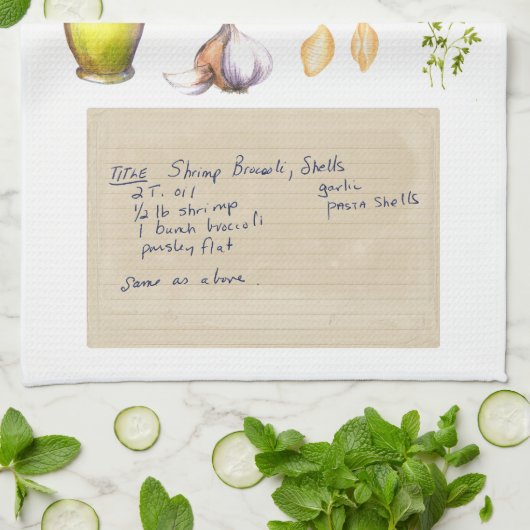 TITLE Shrimp Broccoli, Shells
2 T. oil
garlic
1/2 lb shrimp
pasta shells
1 bunch broccoli
parsley flat
Same as above.